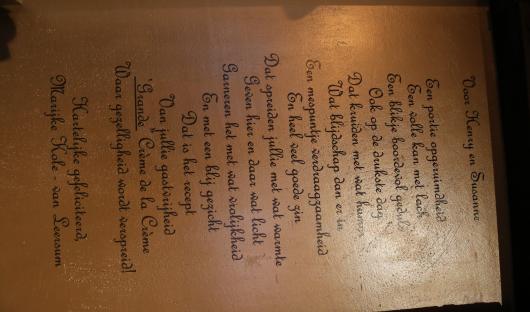 Voor Henry en Susanne
Een portie opgeruimdheid
Een volle kan met lach
Een blikje boordevol geduld
Ook op de drukste dag
Dat kruiden met wat humor
Wat blijdschap dan er in
Een mespuntje verdraagzaamheid
En heel veel goede zin
Dat spreiden jullie met wat warmte
Geven hier en daar wat licht
Garneren het met wat vrolijkheid
En met een blij gezicht
Dat is het recept
Van jullie gastvrijheid
'Grande Crème de la Crème
Waar gezelligheid wordt verspreid!
Hartelijke gefeliciteerd,
Marijke Kole - van Leersum